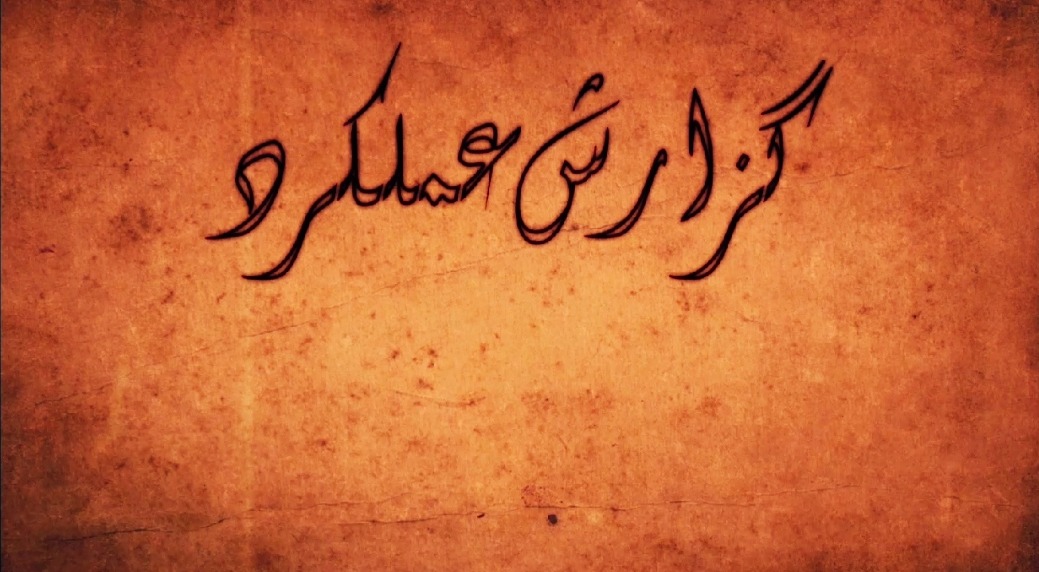 گزارش عملکرد